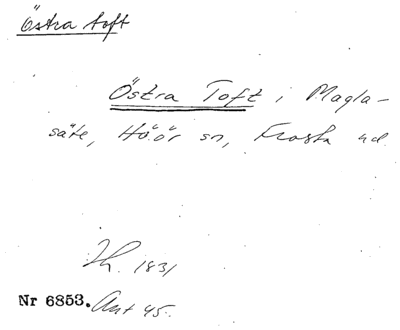 Östra toft
Östra Toft i Magla-
säte, Höör sn, Frosta hd.
Th. 1831
Nr 6853. Ant 45.